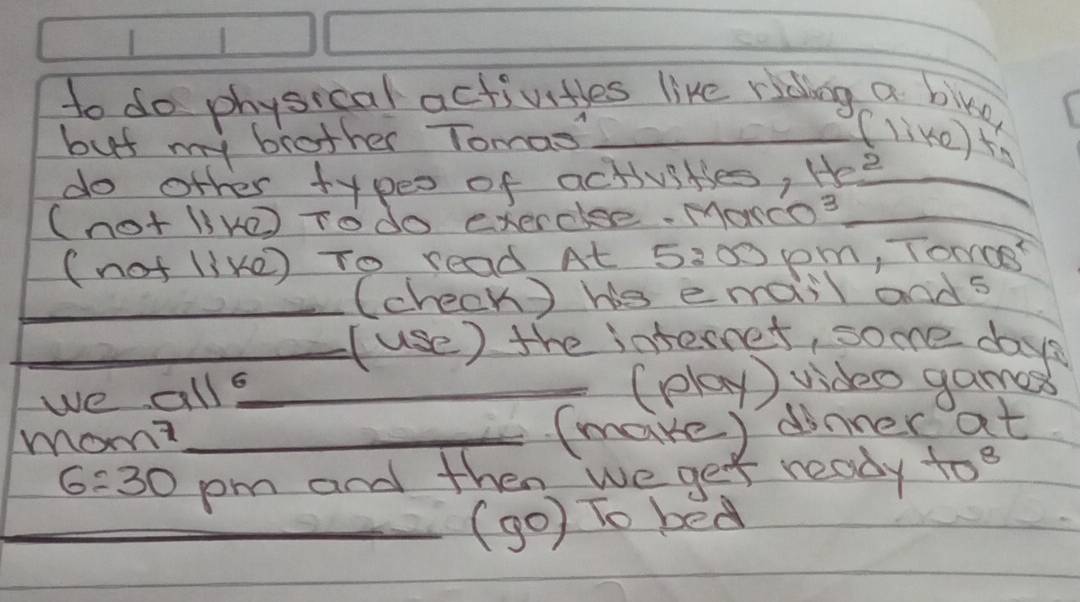 to do physical activities like riding a bike,
but my brother Tomas ¹ __________ (like) to
do other types of activities, He ² __________
(not like) To do exercise. Marco ³ __________
(not like) To read At 5:00 pm, Tomas ⁴
__________ (check) his email and ⁵
__________ (use) the internet, some days
we all ⁶ __________ (play) video games
mom ⁷ __________ (make) dinner at
6:30 pm and then we get ready to ⁸
__________ (go) To bed